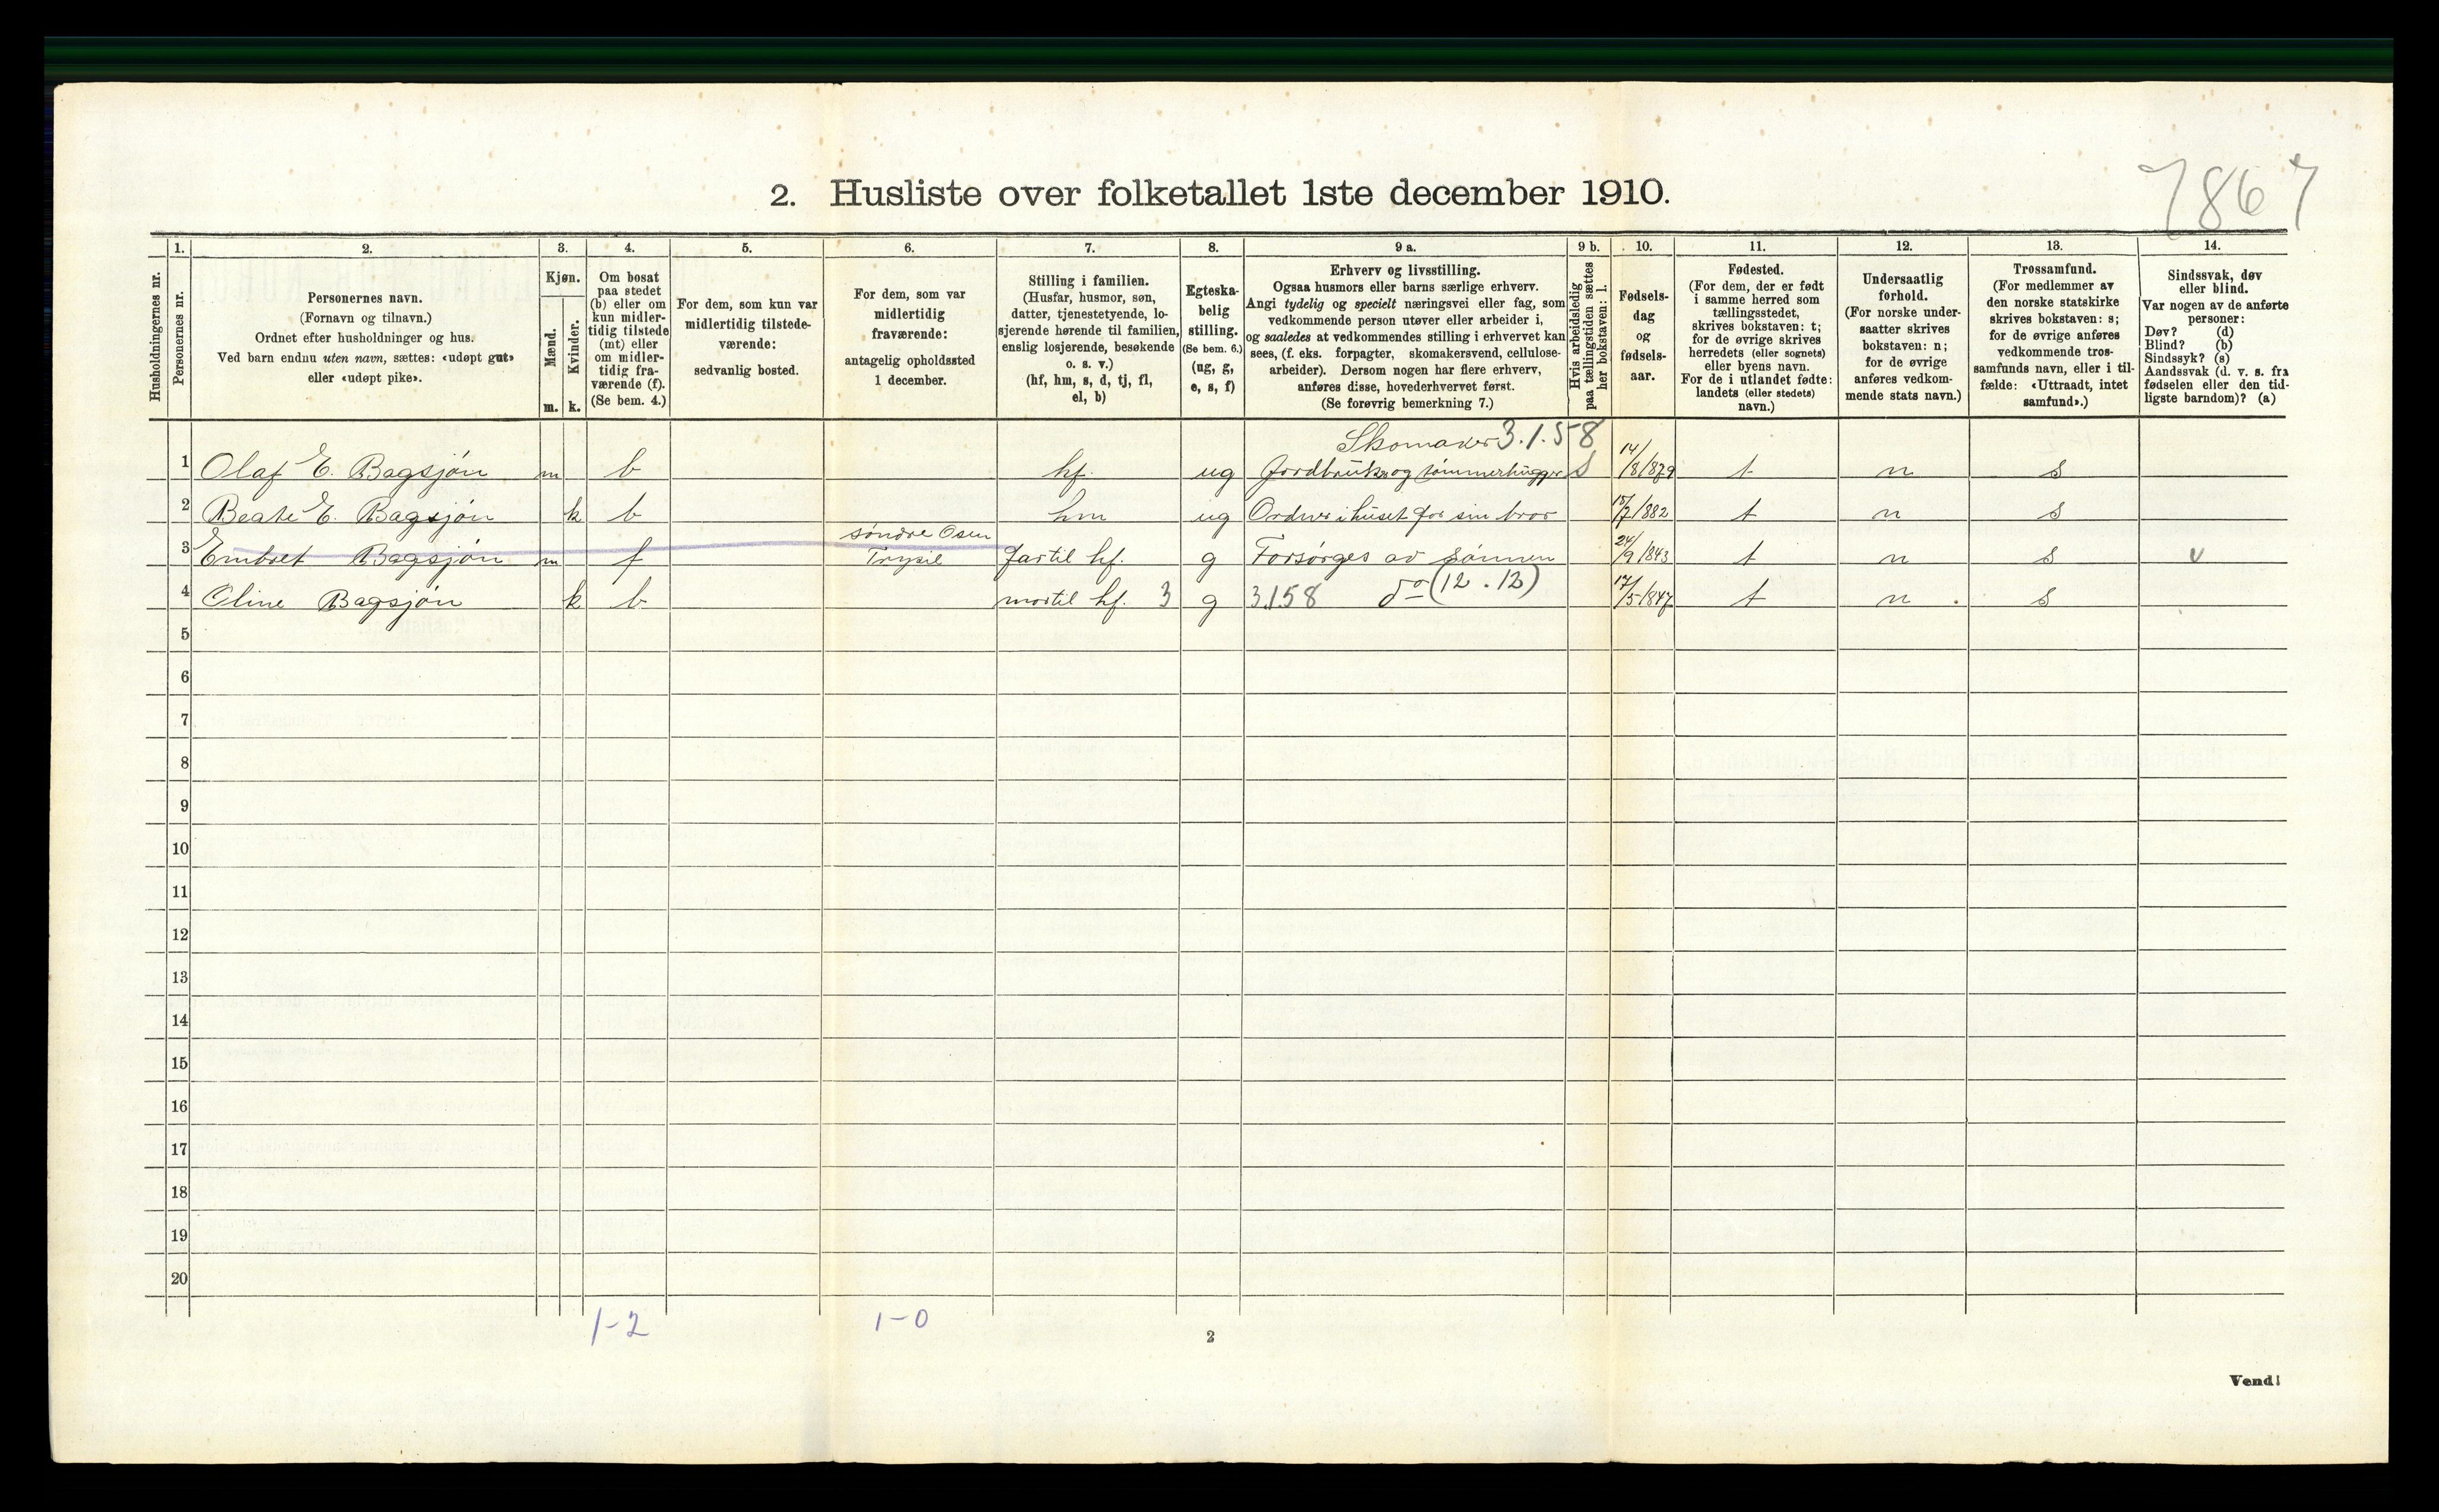 7867
2. Husliste over folketallet 1ste december 1910.
Husholdningernes nr.
1.
Personernes nr.
2.
Personernes navn.
(Fornavn og tilnavn.)
Ordnet efter husholdninger og hus.
Ved barn endnu uten navn, sættes: «udøpt gut»
eller «udøpt pike».
3.
Kjøn.
Mænd.
Kvinder.
m. k.
4.
Om bosat
paa stedet
(b) eller om
kun midler-
tidig tilstede
(mt) eller
om midler-
tidig fra-
værende (f).
(Se bem. 4.)
5.
For dem, som kun var
midlertidig tilstede-
værende:
sedvanlig bosted.
6.
For dem, som var
midlertidig
fraværende:
antagelig opholdssted
1 december.
7.
Stilling i familien.
(Husfar, husmor, søn,
datter, tjenestetyende, lo-
sjerende hørende til familien,
enslig losjerende, besøkende
o. s. v.)
(hf, hm, s, d, tj, fl,
el, b)
8.
Egteska-
belig
stilling.
(Se bem. 6.)
(ug, g,
e, s, f)
9 a.
Erhverv og livsstilling.
Ogsaa husmors eller barns særlige erhverv.
Angi tydelig og specielt næringsvei eller fag, som
vedkommende person utøver eller arbeider i,
og saaledes at vedkommendes stilling i erhvervet kan
sees, (f. eks. forpagter, skomakersvend, cellulose-
arbeider). Dersom nogen har flere erhverv,
anføres disse, hovederhvervet først.
(Se forøvrig bemerkning 7.)
9 b.
Hvis arbeidsledig
paa tællingstiden sættes
her bokstaven: l.
10.
Fødsels-
dag
og
fødsels-
aar.
11.
Fødested.
(For dem, der er født
i samme herred som
tællingsstedet,
skrives bokstaven: t;
for de øvrige skrives
herredets (eller sognets)
eller byens navn.
For de i utlandet fødte:
landets (eller stedets)
navn.)
12.
Undersaatlig
forhold.
(For norske under-
saatter skrives
bokstaven: n;
for de øvrige
anføres vedkom-
mende stats navn.)
13.
Trossamfund.
(For medlemmer av
den norske statskirke
skrives bokstaven: s;
for de øvrige anføres
vedkommende tros-
samfunds navn, eller i til-
fælde: «Uttraadt, intet
samfund».)
14.
Sindssvak, døv
eller blind.
Var nogen av de anførte
personer:
Døv? (d)
Blind? (b)
Sindssyk? (s)
Aandssvak (d. v. s. fra
fødselen eller den tid-
ligste barndom)? (a)
Skomaker 3.1.58
1 Olaf E. Bagsjön m b hf. ug Jordbruker og tömmerhugger 14/8/879 t n s
2 Beate E. Bagsjön k b hm ug Ordner i huset for sin bror 15/7/882 t n s
søndre Osen
3 Embret Bagsjön m f Trysil far til hf. g Forsörges av sönnen 24/9/843 t n s v
4 Oline Bagsjön k b mor til hf. 3 g 3.1.58 do (12.12) 17/5/847 t n s
5
6
7
8
9
10
11
12
13
14
15
16
17
18
19
20
1-2 1-0
2
Vend!